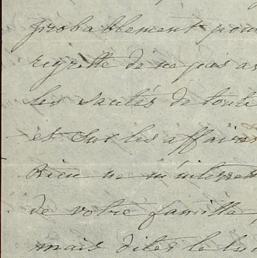 probablement pour
regrette de ne pas a
les santés de toute
et sur les affair
Rien ne m'intéres
de votre famille,
mais dites le bi